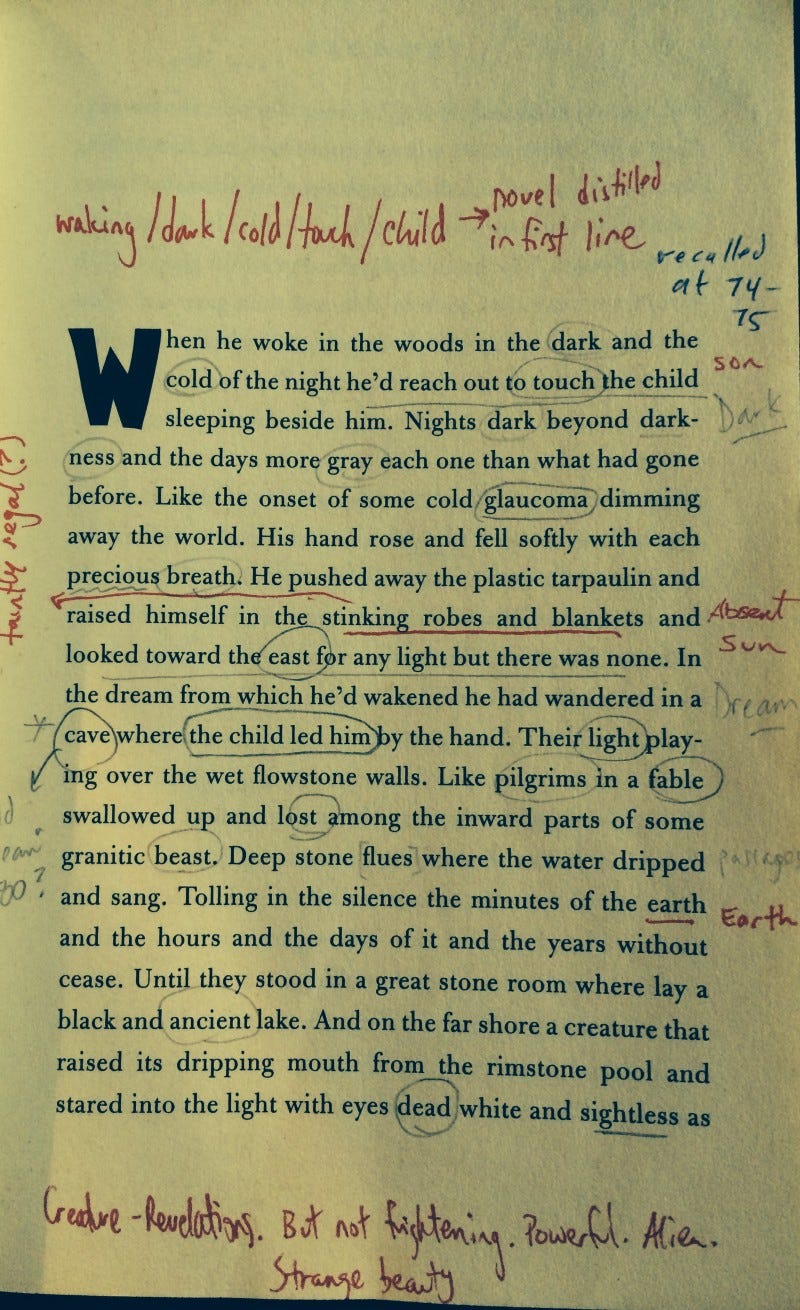 waking/dark/cold/touch/child → novel distilled
in first line
recalled
at 74-
75
When he woke in the woods in the dark and the
cold of the night he'd reach out to touch the child
son
sleeping beside him. Nights dark beyond dark-
Dark
ness and the days more gray each one than what had gone
before. Like the onset of some cold glaucoma dimming
away the world. His hand rose and fell softly with each
precious breath. He pushed away the plastic tarpaulin and
raised himself in the stinking robes and blankets and
Absent
Sun
looked toward the east for any light but there was none. In
the dream from which he'd wakened he had wandered in a
Dream
cave where the child led him by the hand. Their light play-
ing over the wet flowstone walls. Like pilgrims in a fable
swallowed up and lost among the inward parts of some
granitic beast. Deep stone flues where the water dripped
and sang. Tolling in the silence the minutes of the earth
Earth
and the hours and the days of it and the years without
cease. Until they stood in a great stone room where lay a
black and ancient lake. And on the far shore a creature that
raised its dripping mouth from the rimstone pool and
stared into the light with eyes dead white and sightless as
faintly regal (?)
Creature - Revelations. But not frightening. Powerful. Alien.
Strange beauty